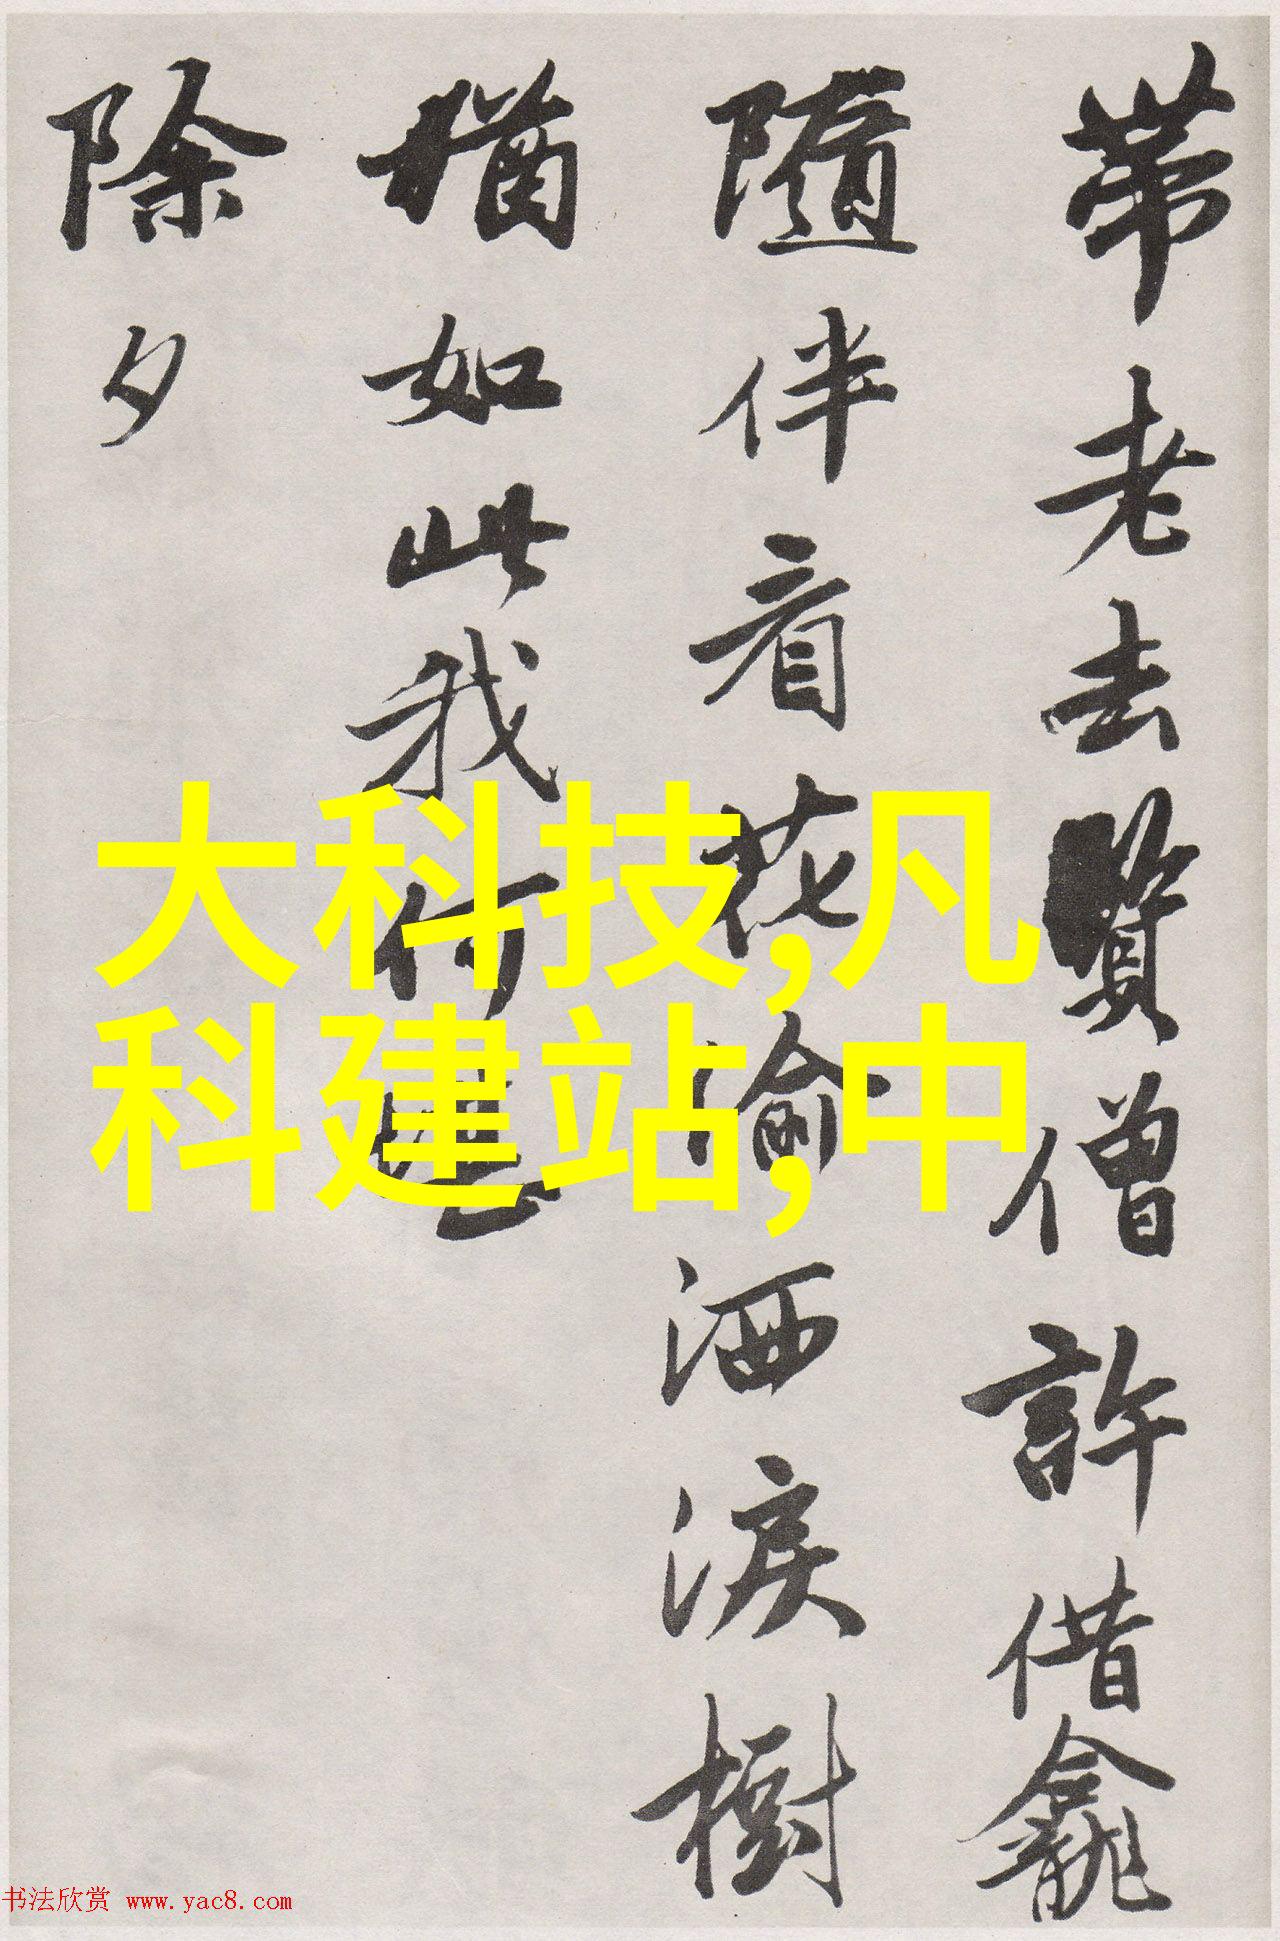 带老去賢僧許借龕
隨伴看花偷洒淚樹
猶如此我何
除夕
大科技,凡
科建站,中
书法欣赏 www.yac8.com